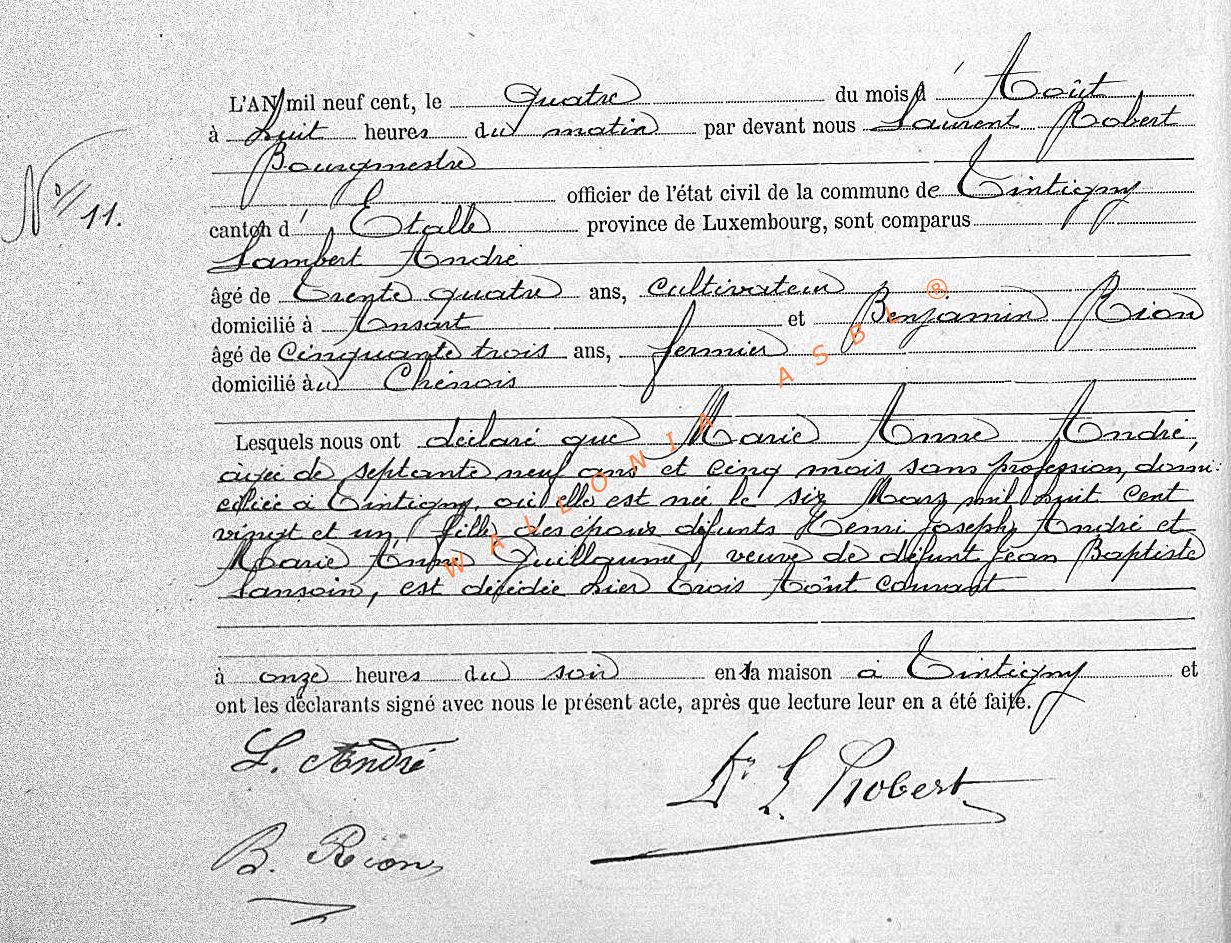 L'AN mil neuf cent, le Quatre du mois d' Août
à huit heures du matin par devant nous Laurent Robert
Bourgmestre
officier de l'état civil de la commune de Tintigny
N° 11.
canton d' Etalle province de Luxembourg, sont comparus
Lambert André
âgé de trente quatre ans, cultivateur
domicilié à Ansart et Benjamin Rion
âgé de cinquante trois ans, fermier
domicilié au Chênois
Lesquels nous ont déclaré que Marie Anne André,
âgée de septante neuf ans et cinq mois sans profession, domi-
ciliée à Tintigny, où elle est née le six Mars mil huit cent
vingt et un, fille des époux défunts Henri Joseph André et
Marie Anne Guillaume, veuve de défunt Jean Baptiste
Lansoin, est décédée hier trois Août courant
à onze heures du soir en sa maison à Tintigny et
ont les déclarants signé avec nous le présent acte, après que lecture leur en a été faite.
L. André
Dr L Robert
B. Rion
WALLONIA ASBL ®